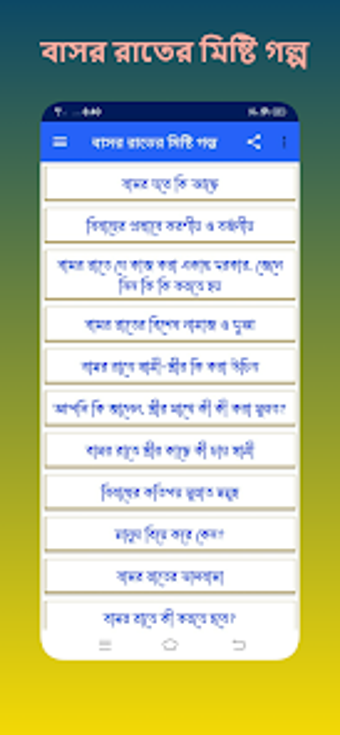 বাসর রাতের মিষ্টি গল্প
বাসর রাতের মিষ্টি গল্প
বাসর রাতে কি আছে
বিবাহের প্রস্তাবে করণীয় ও বর্জনীয়
বাসর রাতে যে কাজ করা একান্ত দরকার, জেনে
নিন কি কি করতে হয়
বাসর রাতের বিশেষ নামাজ ও দুআ
বাসর রাতে স্বামী-স্ত্রীর কি করা উচিত
আপনি কি জানেন, স্ত্রীর সাথে কী কী করা সুন্নত?
বাসর রাতে স্ত্রীর কাছে কী চায় স্বামী
বিবাহের কতিপয় সুন্নাত সমূহ
মানুষ বিয়ে করে কেন?
বাসর রাতের ভালবাসা
বাসর রাতে কী করতে হবে?